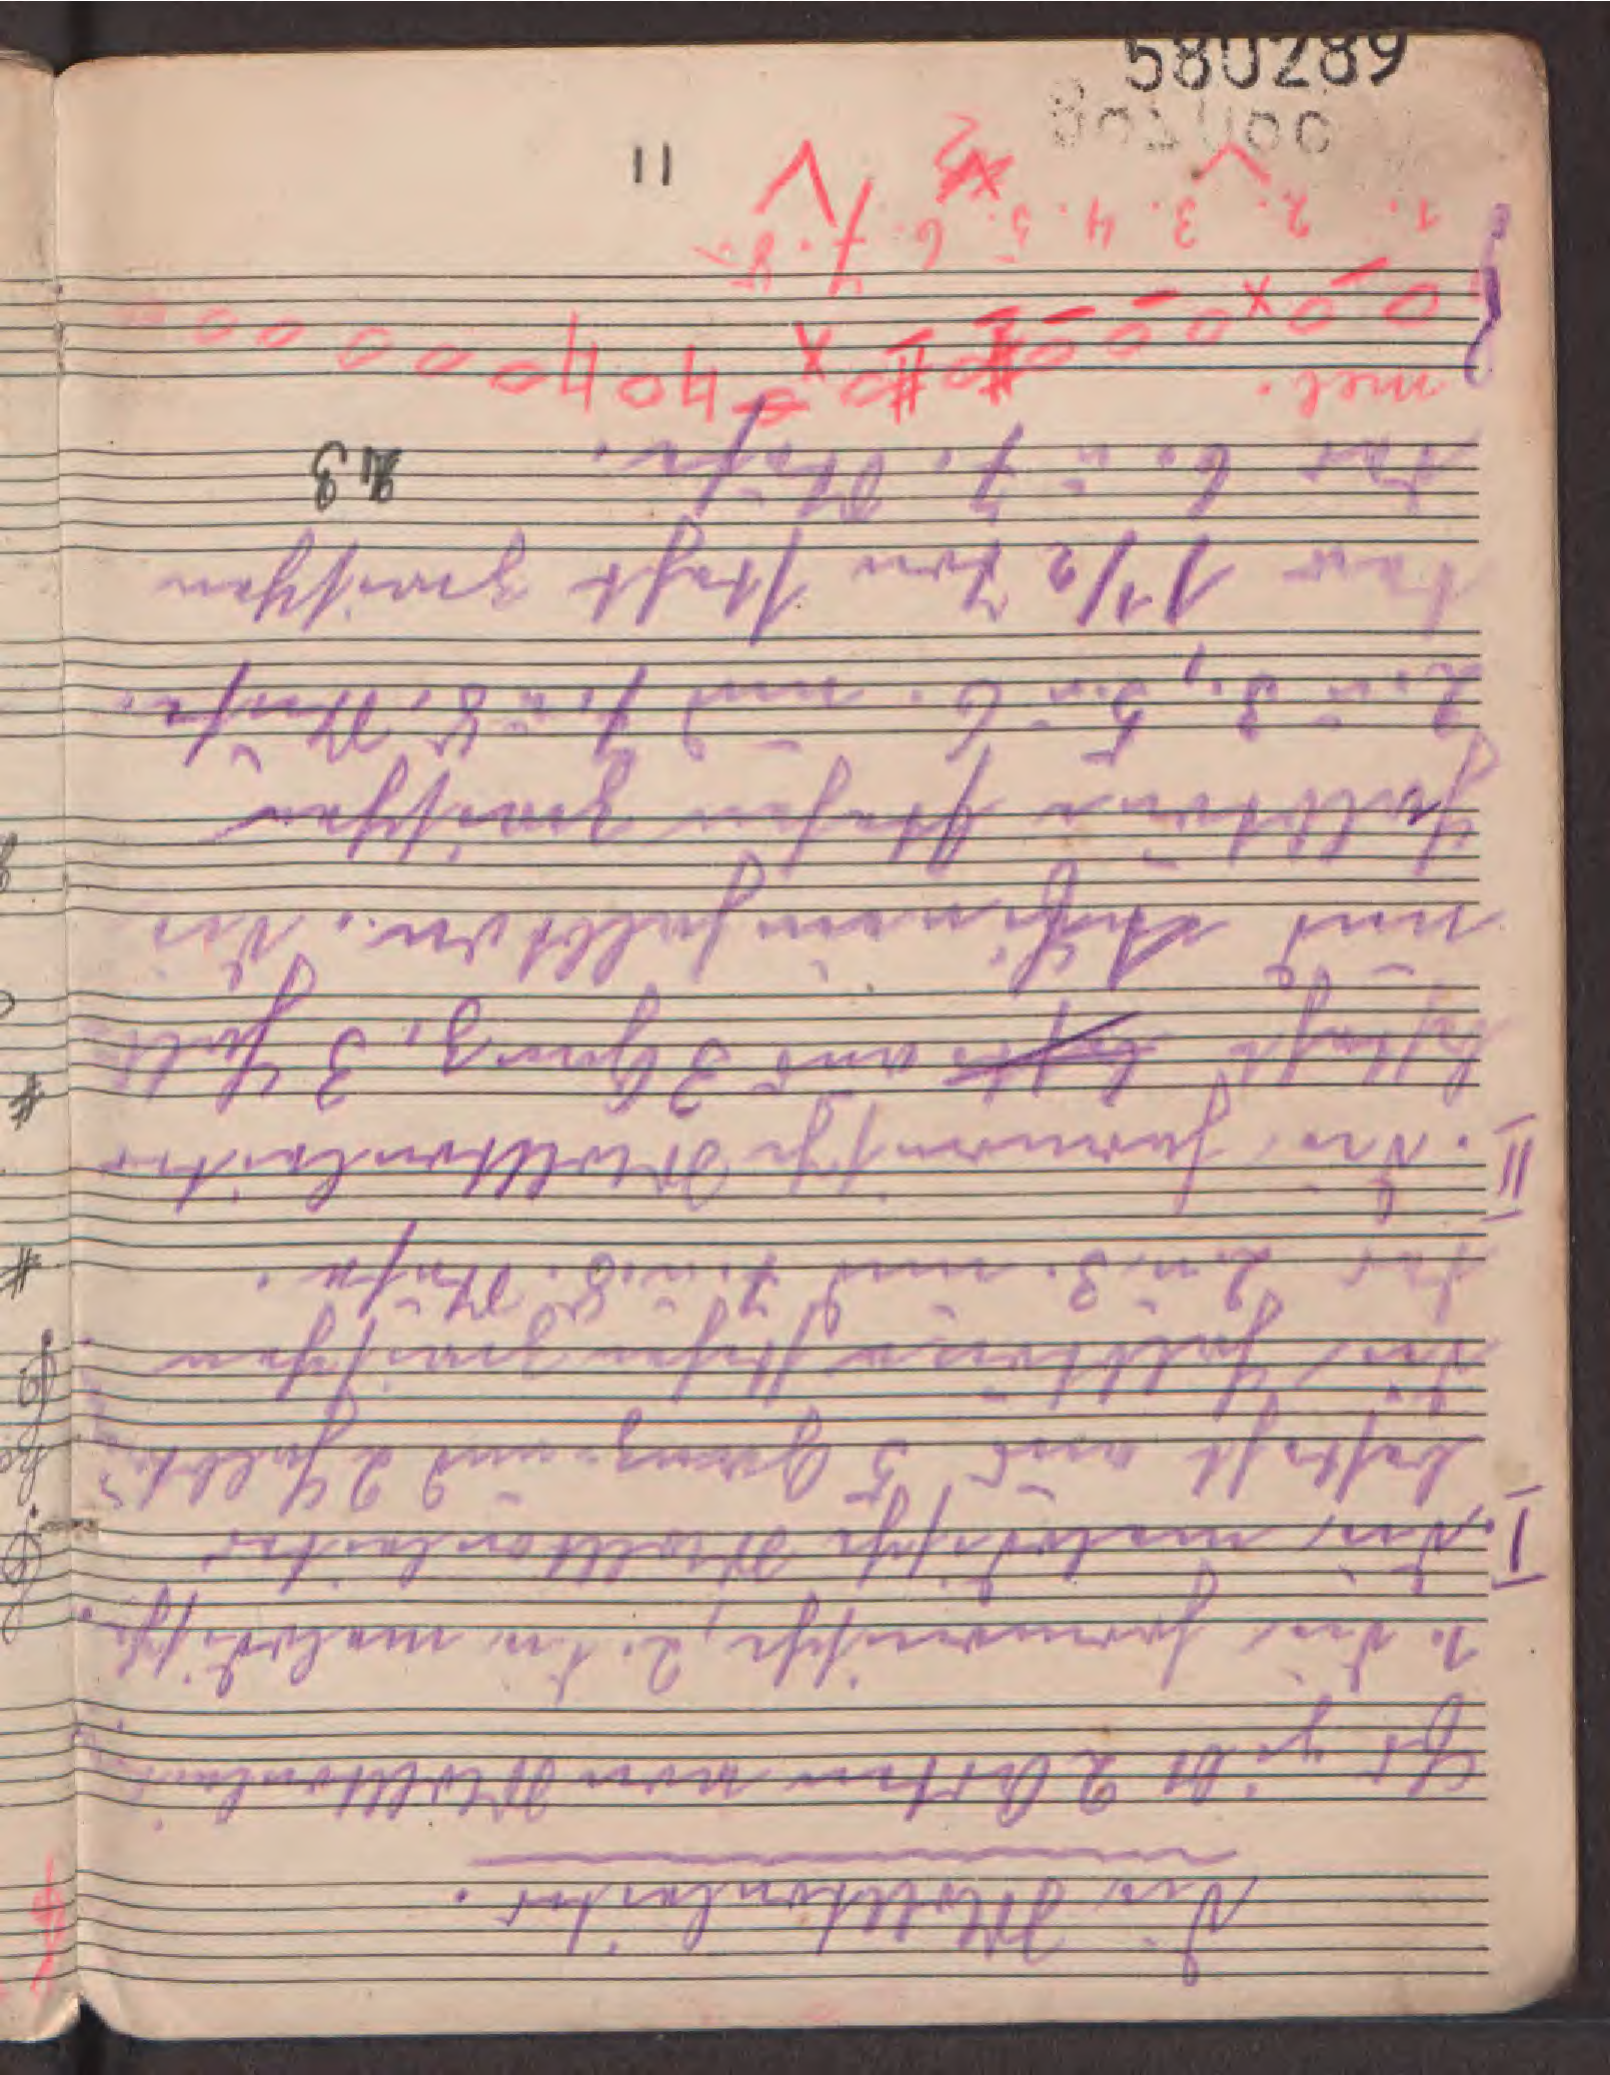 Die Molltonleiter.
Es gibt 2 Arten von Molltonleit
1. die harmonische, 2. die melodische.
I. Die melodische Molltonleiter
besteht aus 5 Ganz- und 2 Halbt.
Die Halbtöne stehen zwischen
der 2. u. 3. und 7. u. 8. Stufe.
II. Die harmonische Molltonleiter
besteht aus 3 Ganz, 3 Halb-
und einhalbton. Die
Halbtöne stehen zwischen
2. u. 3., 5. u. 6. und 7. u. 8. Stufe.
Der 1 1/2 Ton steht zwischen
der 6. u. 7. Stufe.
23
mel.
1. 2. 3. 4. 5. 6. 7. 8.
11
580289